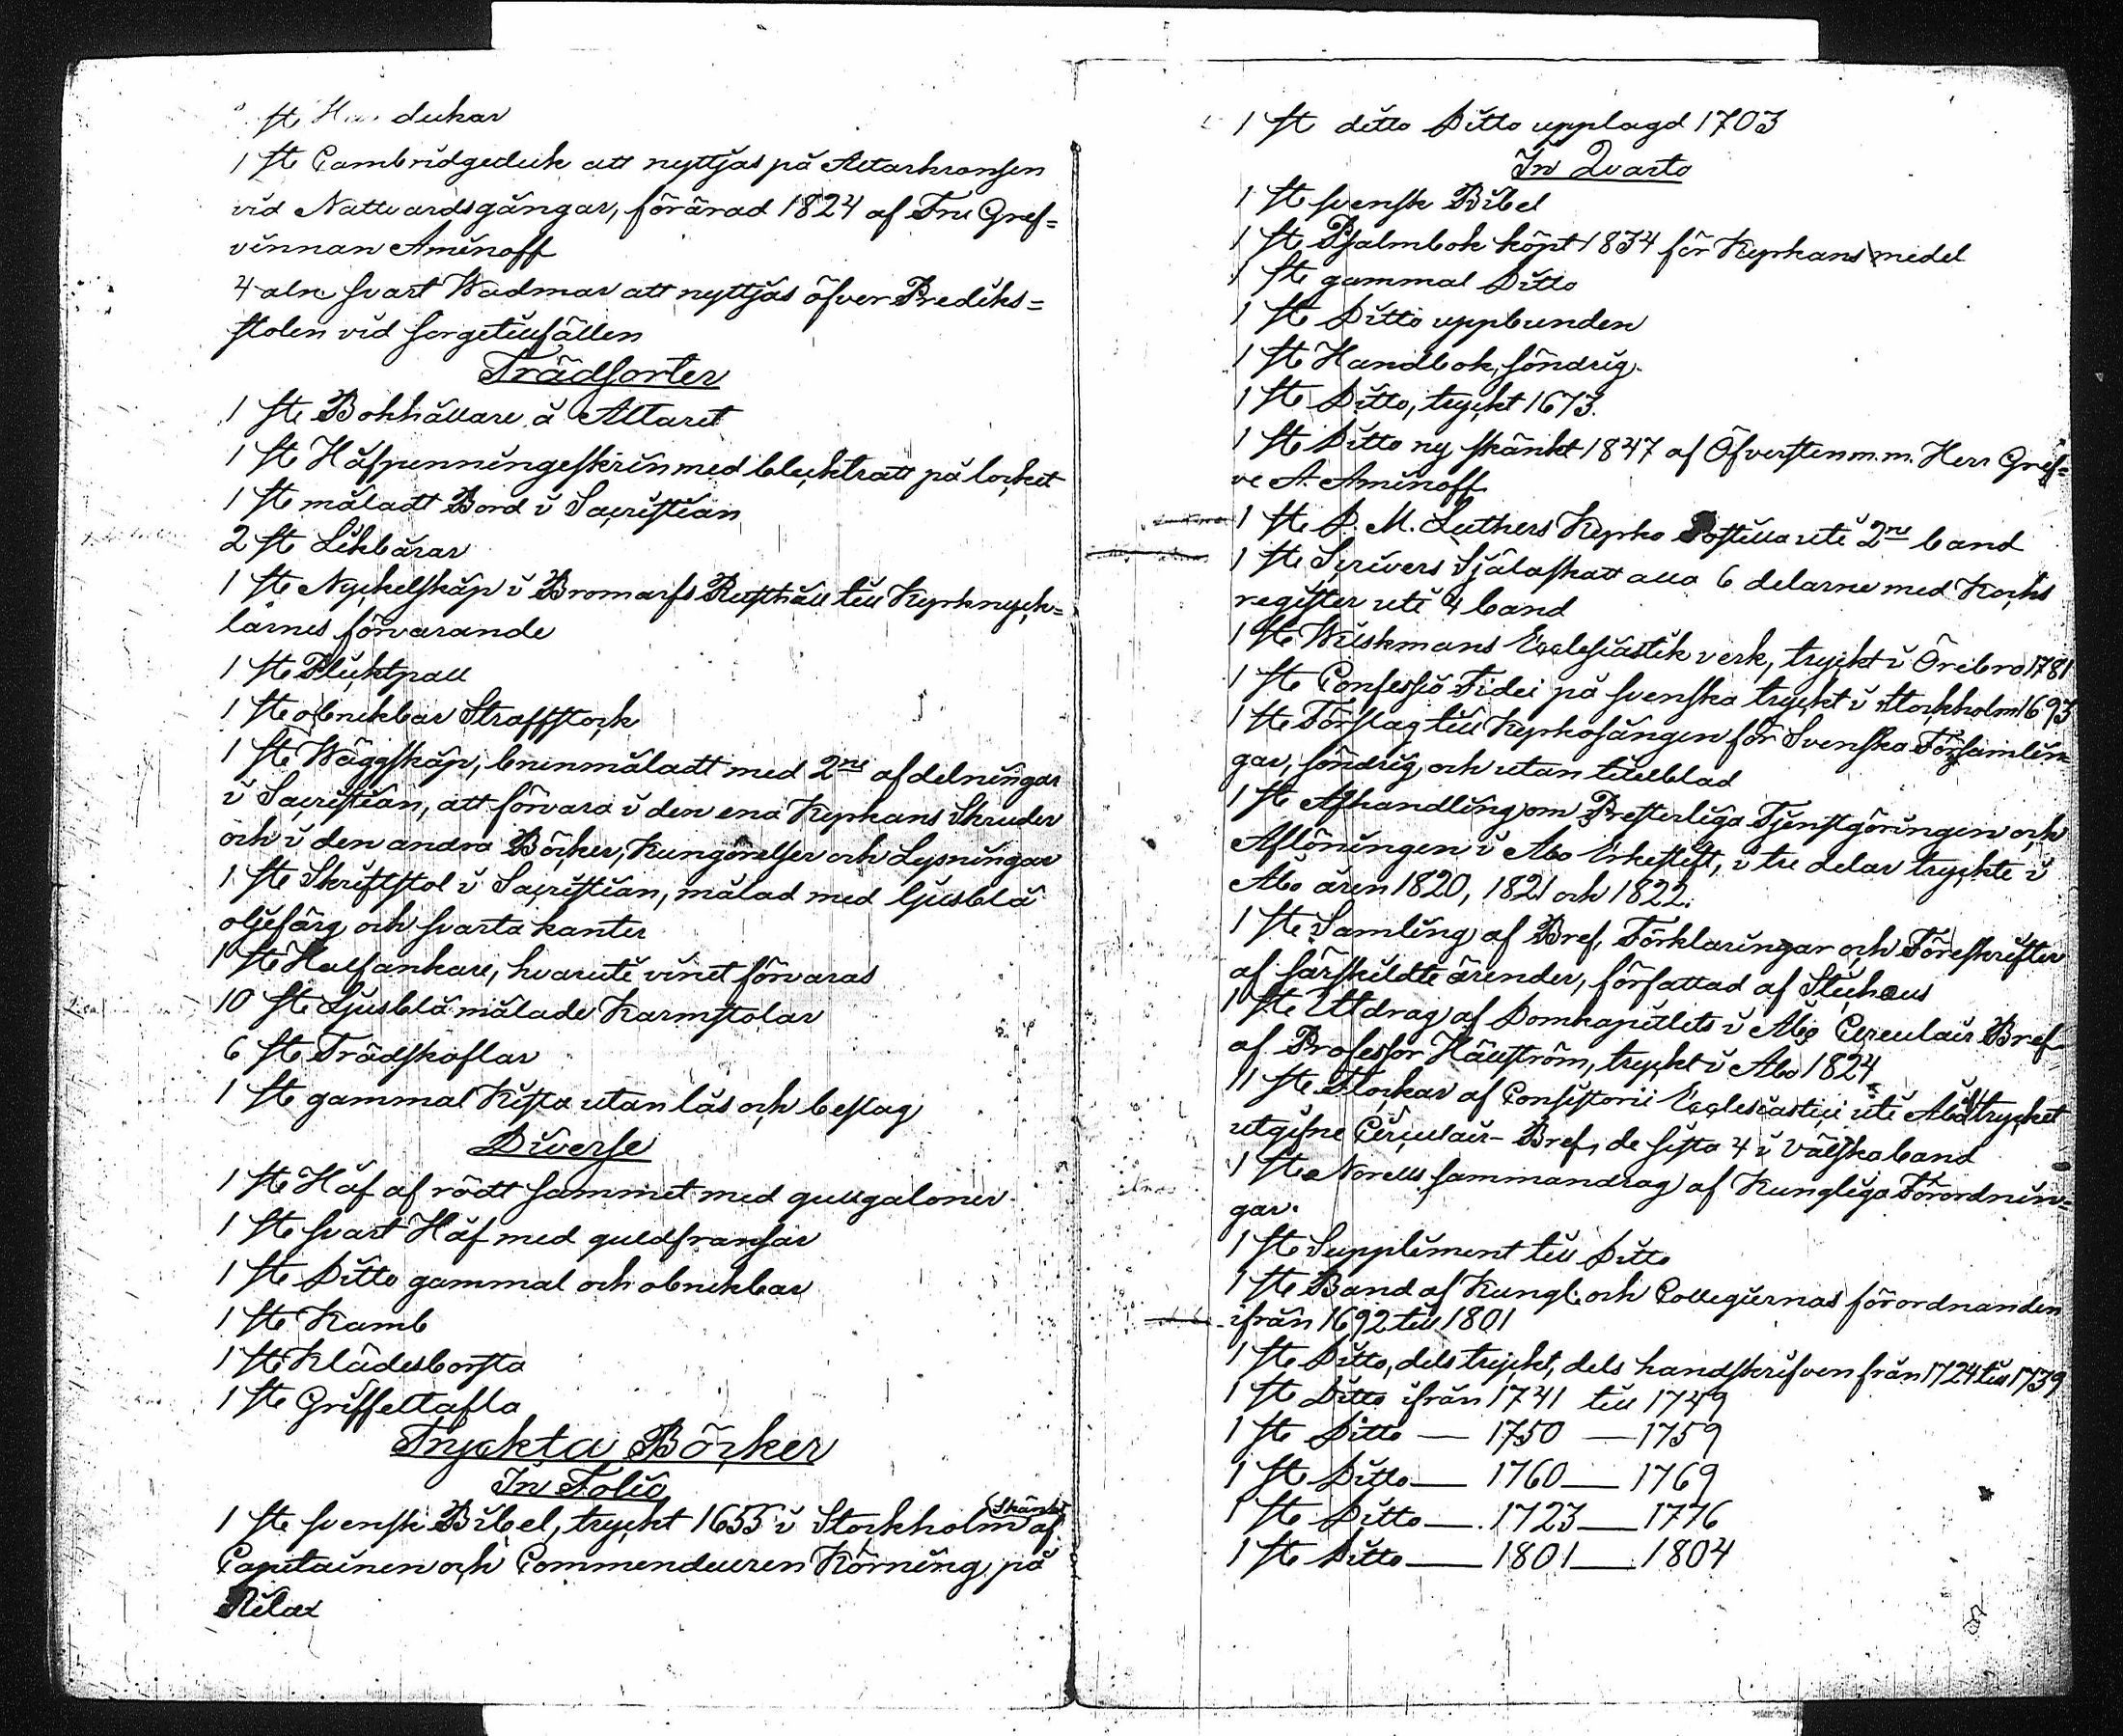 st Handukar
1 st Cambridgeduk att nyttjas på Altarkransen
vid Nattvardsgångar, förärad 1824 af Fru Gref=
vinnan Aminoff
4 aln svart Wadmar att nyttjas öfver Prediks=
stolen vid sorgetillfällen
Trädsorter
1 st Bokhållare å Altaret
1 st Håfpenningeskrin med blecktratt på locket
1 st måladt Bord i Sacristian
2 st Likbårar
1 st Nyckelskåp i Bromarfs Rusthåll till Kyrknyck=
larnes förvarande
1 st Plicktpall
1 st obrukbar Straffstock
1 st Wäggskåp, brunmåladt med 2ne afdelningar
i Sacristian, att förvara i den ena Kyrkans Skruder
och i den andra Böcker, Kungörelser och Lysningar
1 st Skriftstol i Sacristian, målad med ljusblå
oljefärg och svarta kanter
1 st Halfankare, hvaruti vinet förvaras
10 st Ljusblå målade Karmstolar
6 st Trädskoflar
1 st gammal Kista utan lås och beslag
Diverse
1 st Håf af rödt sammet med gullgaloner
1 st svart Håf med guldfransar
1 st Ditto gammal och obrukbar
1 st Kamb
1 st Klädesborsta
1 st Griffeltafla
Tryckta Böcker
In Folio
1 st svensk Bibel, tryckt 1655 i Stockholm skänkt af
Capitainen och Commendeuren Körning på
Rilax
1 st ditto Ditto upplagd 1703
In Qvarto
1 st svensk Bibel
1 st Psalmbok köpt 1834 för Kyrkans medel
1 st gammal Ditto
1 st Ditto uppbunden
1 st Handbok, söndrig.
1 st Ditto, tryckt 1673.
1 st Ditto ny skänkt 1847 af Öfversten m.m. Herr Gref=
ve A Aminoff
1 st D. M. Luthers Kyrko Postilla uti 2ne band
1 st Scrivers Själaskatt alla 6 delarne med Kochs
register uti 4 band
1 st Wilskmans Ecclesiastik verk, tryckt i Örebro 1781
1 st Confessio Fidei på svenska tryckt i Stockholm 1693
1 st Förslag till Kyrkosången för Svenska Församlin
gar, söndrig och utan titelblad
1 st Afhandling om Presterliga Tjenstgöringen och
Aflöningen i Åbo Erkestift, i tre delar tryckte i
Åbo åren 1820, 1821 och 1822.
1 st Samling af Bref, Förklaringar och Föreskrifter
af särskildte ärender, författad af Stichæus
1 st Utdrag af Domkapitlets i Åbo Circulair Bref
af Professor Hällström, tryckt i Åbo 1824
11 st Flockar af Consistorii Ecclesiastici uti Åbo i trycket
utgifne Circulair-Bref, de sista 4 i välska band
1 st Norells sammandrag af Kungliga Förordnin=
gar.
1 st Supplement till Ditto
1 st Band af Kungl. och Collegiernas förordnanden
ifrån 1692 till 1801
1 st Ditto, dels tryckt, dels handskrifven från 1724 till 1739
1 st Ditto ifrån 1741 till 1749
1 st Ditto — 1750 — 1759
1 st Ditto — 1760 — 1769
1 st Ditto — 1723 — 1776
1 st Ditto — 1801 — 1804